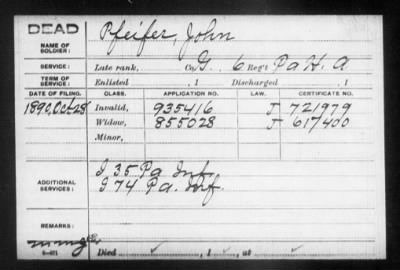 DEAD
Pfeifer, John
NAME OF
SOLDIER:
SERVICE:
Late rank, Co. G. 6 Reg't Pa H. A
TERM OF
SERVICE:
Enlisted , 1 Discharged , 1
DATE OF FILING. CLASS. APPLICATION NO. LAW. CERTIFICATE NO.
1890, Oct-28 Invalid, 935416 J 721979
Widow, 855028 J 617400
Minor,
ADDITIONAL
SERVICES:
I 35 Pa Inf.
I 74 Pa. Inf.
REMARKS:
Died , 1 , at